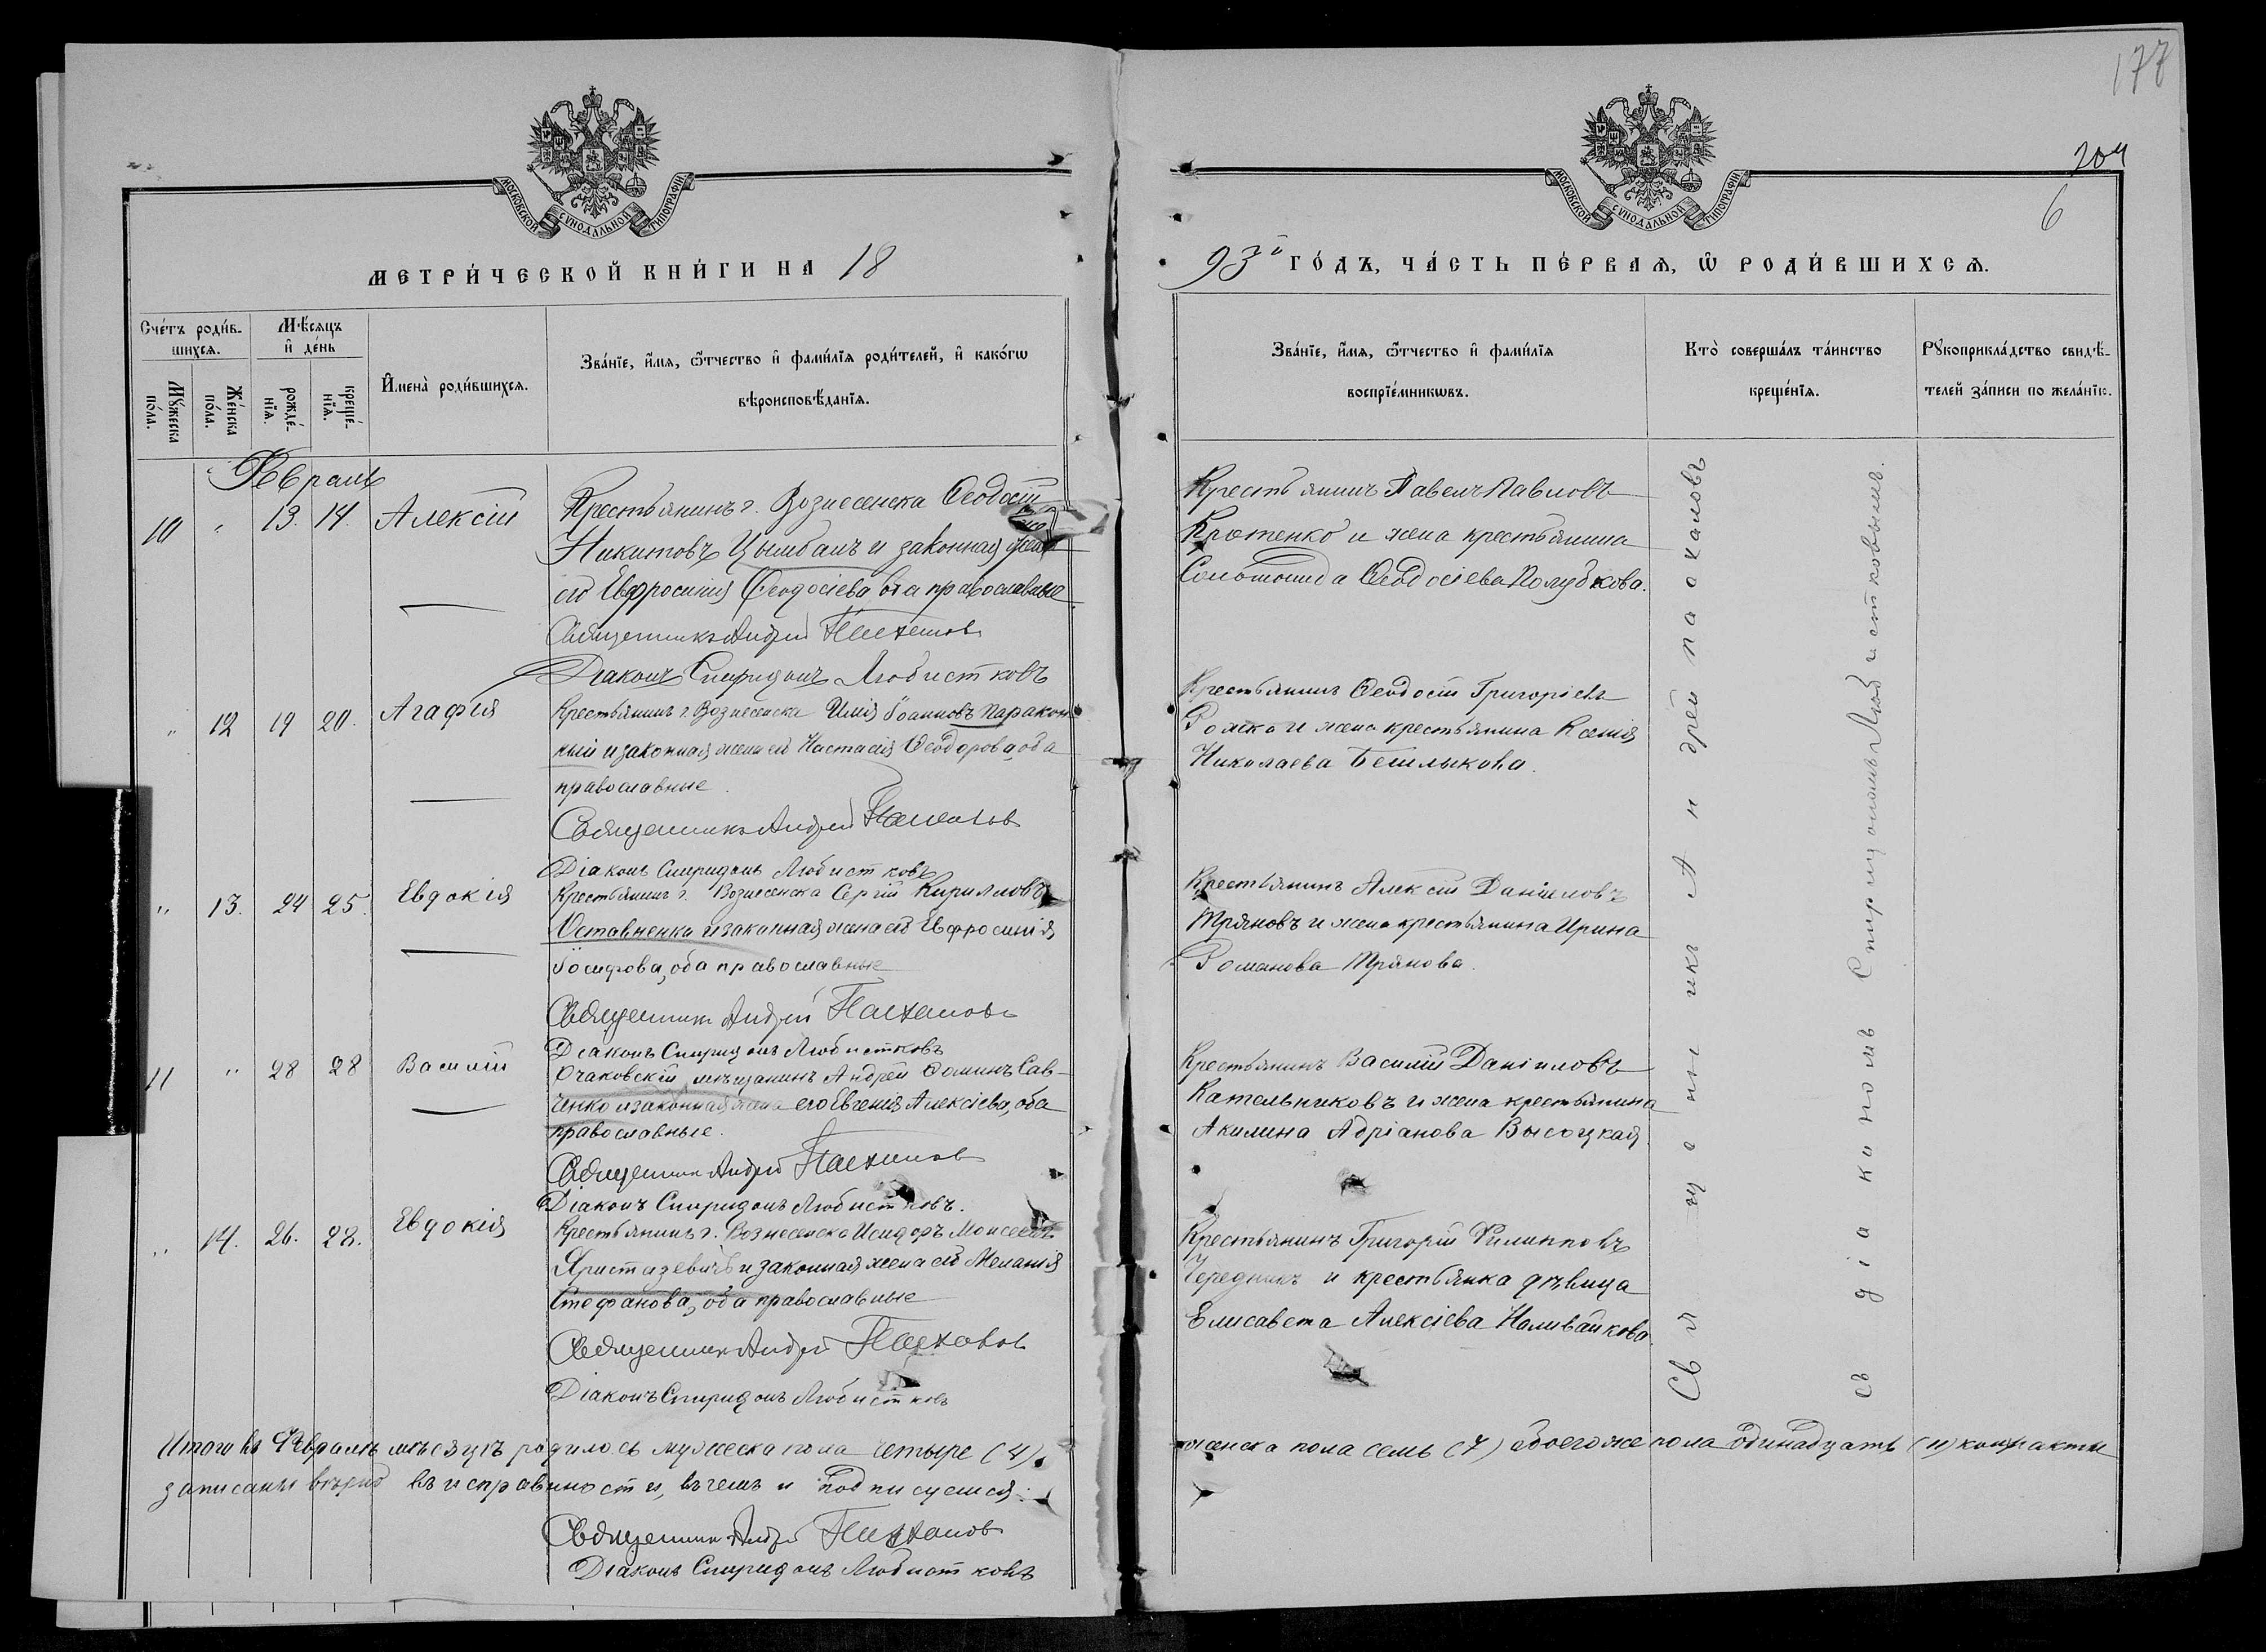 177
204
6
МОСКОВСКОЙ СѴНОДАЛЬНОЙ ТИПОГРАФІИ
МОСКОВСКОЙ СѴНОДАЛЬНОЙ ТИПОГРАФІИ
МЕТРИ́ЧЕСКОЙ КНИ́ГИ НА 18
93й ГО́ДЪ, ЧА́СТЬ ПЕ́РВАЯ, Ѡ҆ РОДИ́ВШИХСЯ.
Сче́тъ роди́в-
шихся.
Мꙋ́жеска по́ла.
Же́нска по́ла.
Мѣ́сяцъ и҆ де́нь
рожде́-нїя.
креще́-нїя.
И҆мена̀ роди́вшихся.
Зва́нїе, и҆́мя, ѻ҆́тчество и҆ фами́лїя роди́телей, и҆ како́гѡ
вѣроисповѣ́данїя.
Зва́нїе, и҆́мя, ѻ҆́тчество и҆ фами́лїя
воспрїе́мникѡвъ.
Кто̀ соверша́лъ та́инство
креще́нїя.
Рꙋкоприкла́дство свидѣ́-
телей за́писи по жела́нїю.
Февраль
10 " 13. 14. Алексій
Крестьянинъ г. Вознесенска Ѳеодосій
Никитовъ Цымбалъ и законная жена
его Евфросинія Ѳеодосіева оба православные
Священникъ Андрей
Діаконъ Спиридонъ Любистковъ
Крестьянинъ Павелъ Павловъ
Крютенко и жена крестьянина
Ѳеодосіева Голубкова.
" 12 19 20. Агафія
Крестьянинъ г. Вознесенска Илія Іоанновъ Паракон-
ный и законная жена его Настасія Ѳеодорова, оба
православные.
Священникъ Андрей
Діаконъ Спиридонъ Любистковъ
Крестьянинъ Ѳеодосій Григоріевъ
и жена крестьянина Ксенія
Николаева Бешлыкова.
" 13. 24 25. Евдокія
Крестьянинъ г. Вознесенска Сергій Кирилловъ
Оставненко и законная жена его Евфросинія
Іосифова, оба православные
Священникъ Андрей
Діаконъ Спиридонъ Любистковъ
Крестьянинъ Алексій Даніиловъ
Тряновъ и жена крестьянина Ирина
Романова Трянова.
11 " 28 28 Василій
Очаковскій мѣщанинъ Андрей Ѳоминъ Сав-
ченко и законная жена его Евгенія Алексіева, оба
православные.
Священникъ Андрей
Діаконъ Спиридонъ Любистковъ.
Крестьянинъ Василій Даніиловъ
Кательниковъ и жена крестьянина
Акилина Адріанова Высоцкая.
" 14. 26. 28. Евдокія
Крестьянинъ г. Вознесенска Исидоръ Моисеевъ
Христазевичъ и законная жена его Меланія
Стефанова, оба православные
Священникъ Андрей
Діаконъ Спиридонъ Любистковъ
Крестьянинъ Григорій Филипповъ
Чередникъ и крестьянка дѣвица
Елисавета Алексіева Наливайкова.
Священникъ Андрей
съ діакономъ Спиридономъ Любистковымъ.
Итого въ Февралѣ мѣсяцѣ родилось мужеска пола четыре (4),
женска пола семь (7) обоего же пола одинадцать (11)
записаны вѣрно въ исправности, въ чемъ и подписуемся:
Священникъ Андрей
Діаконъ Спиридонъ Любистковъ